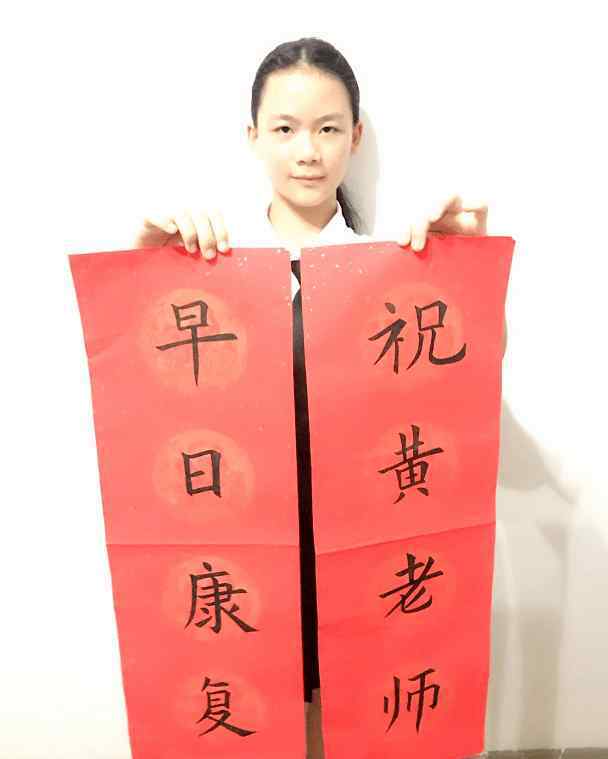 祝黄老师
早日康复